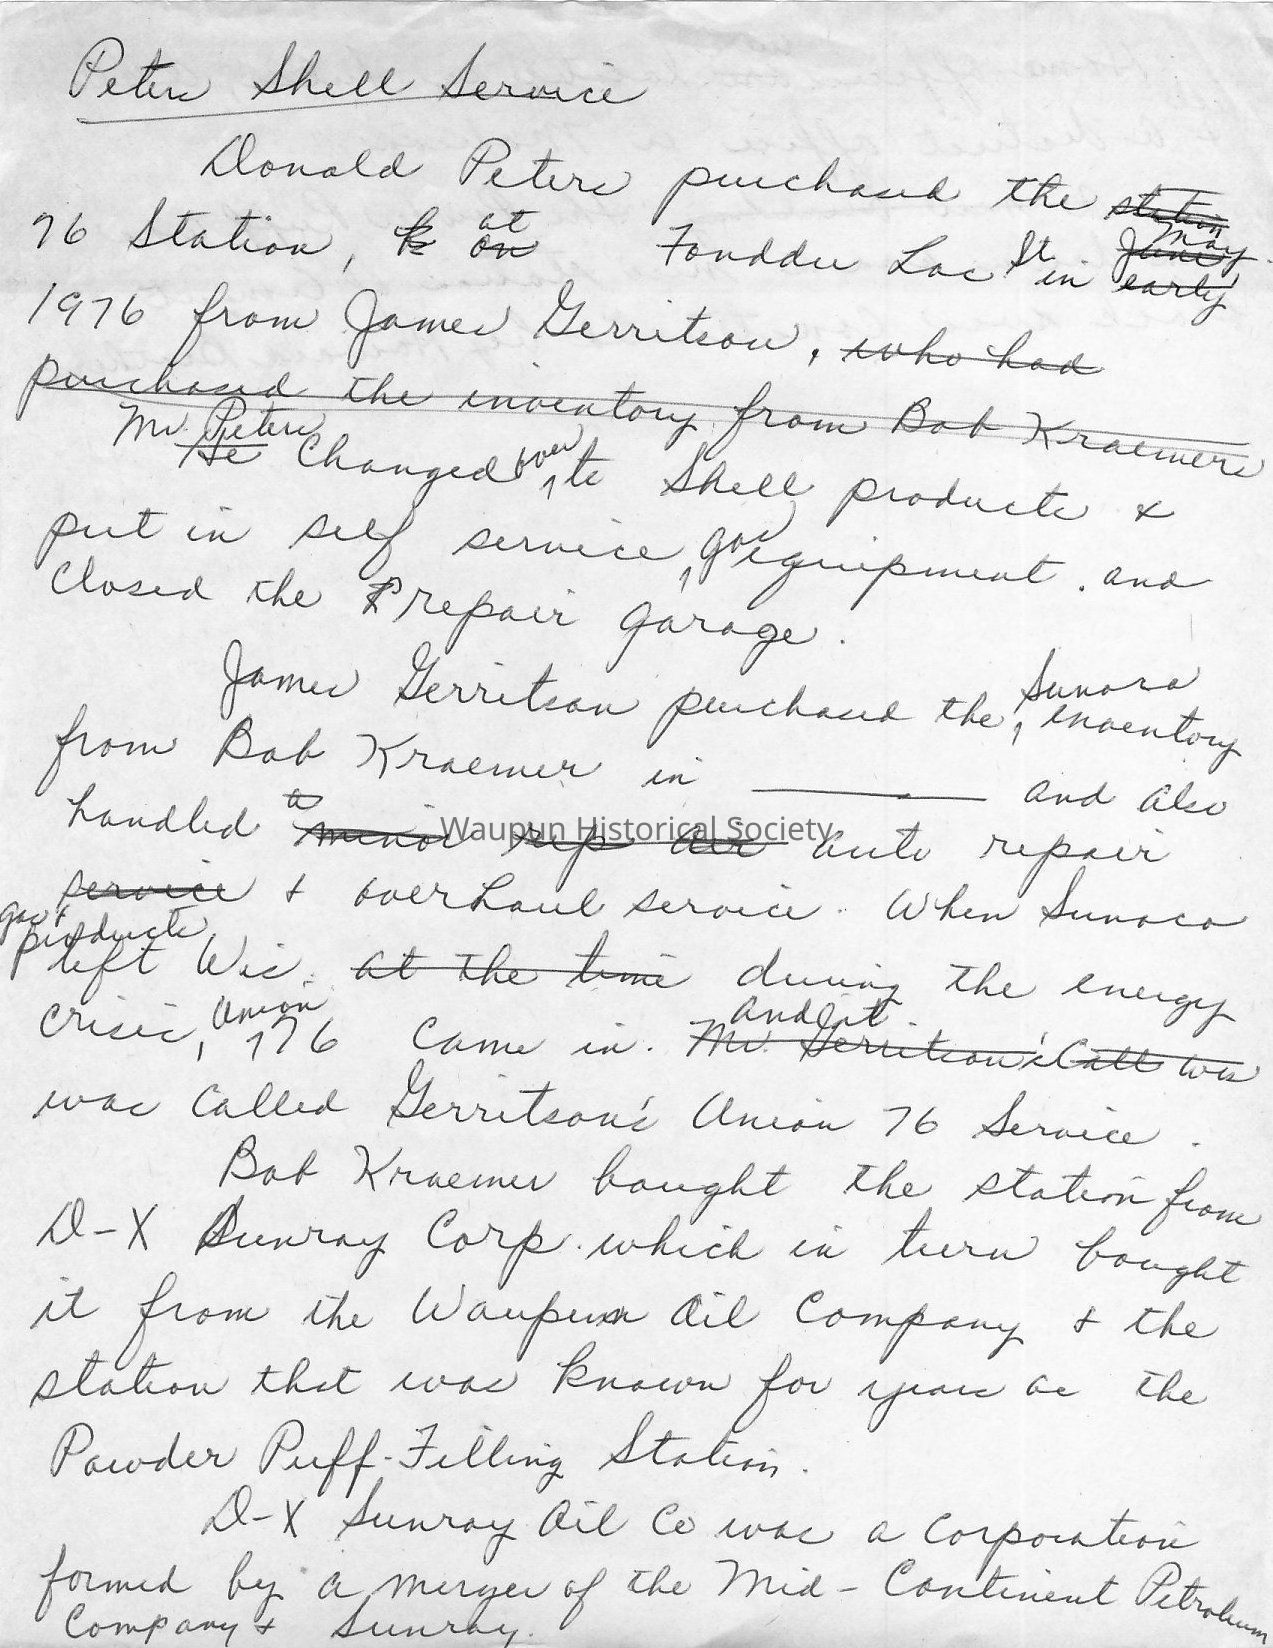 Peters Shell Service
Donald Peters purchased the station
76 Station, at on Fonddu Lac St in May June early
1976 from James Gerritson, who had
purchased the inventory from Bob Kraemers
Mr. Peters
He Changed over to Shell products &
put in self service, gas equipment. and
Closed the repair garage.
James Gerritson purchased the Sunoco inventory
from Bob Kraemer in ________ and also
handled a minor rep air auto repair
service & overhaul service. When Sunoco
gas & products
left Wis. at the time during the energy
crisis, Union 76 came in. and it Mr. Gerritson's Call was
was called Gerritson's Union 76 Service.
Bob Kraemer bought the station from
D-X Sunray Corp. which in turn bought
it from the Waupun Oil Company & the
station that was known for years as the
Powder Puff-Filling Station.
D-X Sunray Oil Co was a corporation
formed by a merger of the Mid-Continent Petroleum
Company & Sunray.
Waupun Historical Society